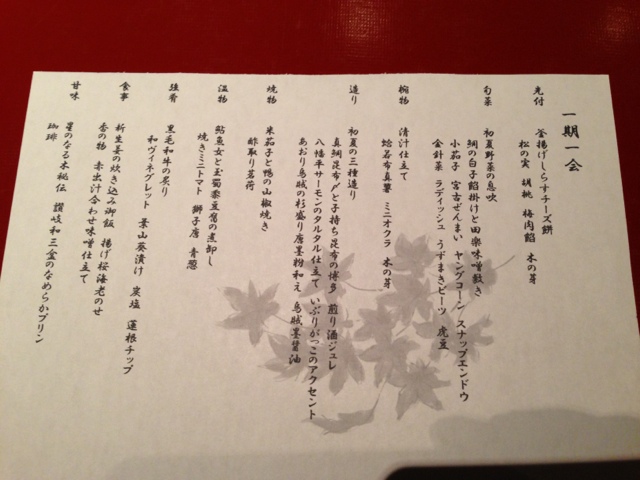 一期一会
先付
釜揚げしらすチーズ餅
松の実 胡桃 梅肉餡 木の芽
旬菜
初夏野菜の息吹
鯛の白子餡掛けと田楽味噌敷き
小茄子 宮古ぜんまい ヤングコーン スナップエンドウ
金針菜 ラディッシュ うずまきビーツ 虎豆
椀物
清汁仕立て
蛤若布真薯 ミニオクラ 木の芽
造り
初夏の三種造り
真鯛昆布〆と子持ち昆布の博多 煎り酒ジュレ
八幡平サーモンのタルタル仕立て いぶりがっこのアクセント
あおり烏賊の杉盛り唐墨粉和え 烏賊墨醤油
焼物
米茄子と鴨の山椒焼き
酢取り茗荷
温物
鮎魚女と玉蜀黍豆腐の煮卸し
焼きミニトマト 獅子唐 青葱
強肴
黒毛和牛の炙り
和ヴィネグレット 葉山葵漬け 炭塩 蓮根チップ
食事
新生姜の炊き込み御飯 揚げ桜海老のせ
香の物 赤出汁合わせ味噌仕立て
甘味
星のなる木秘伝 讃岐和三盆のなめらかプリン
珈琲